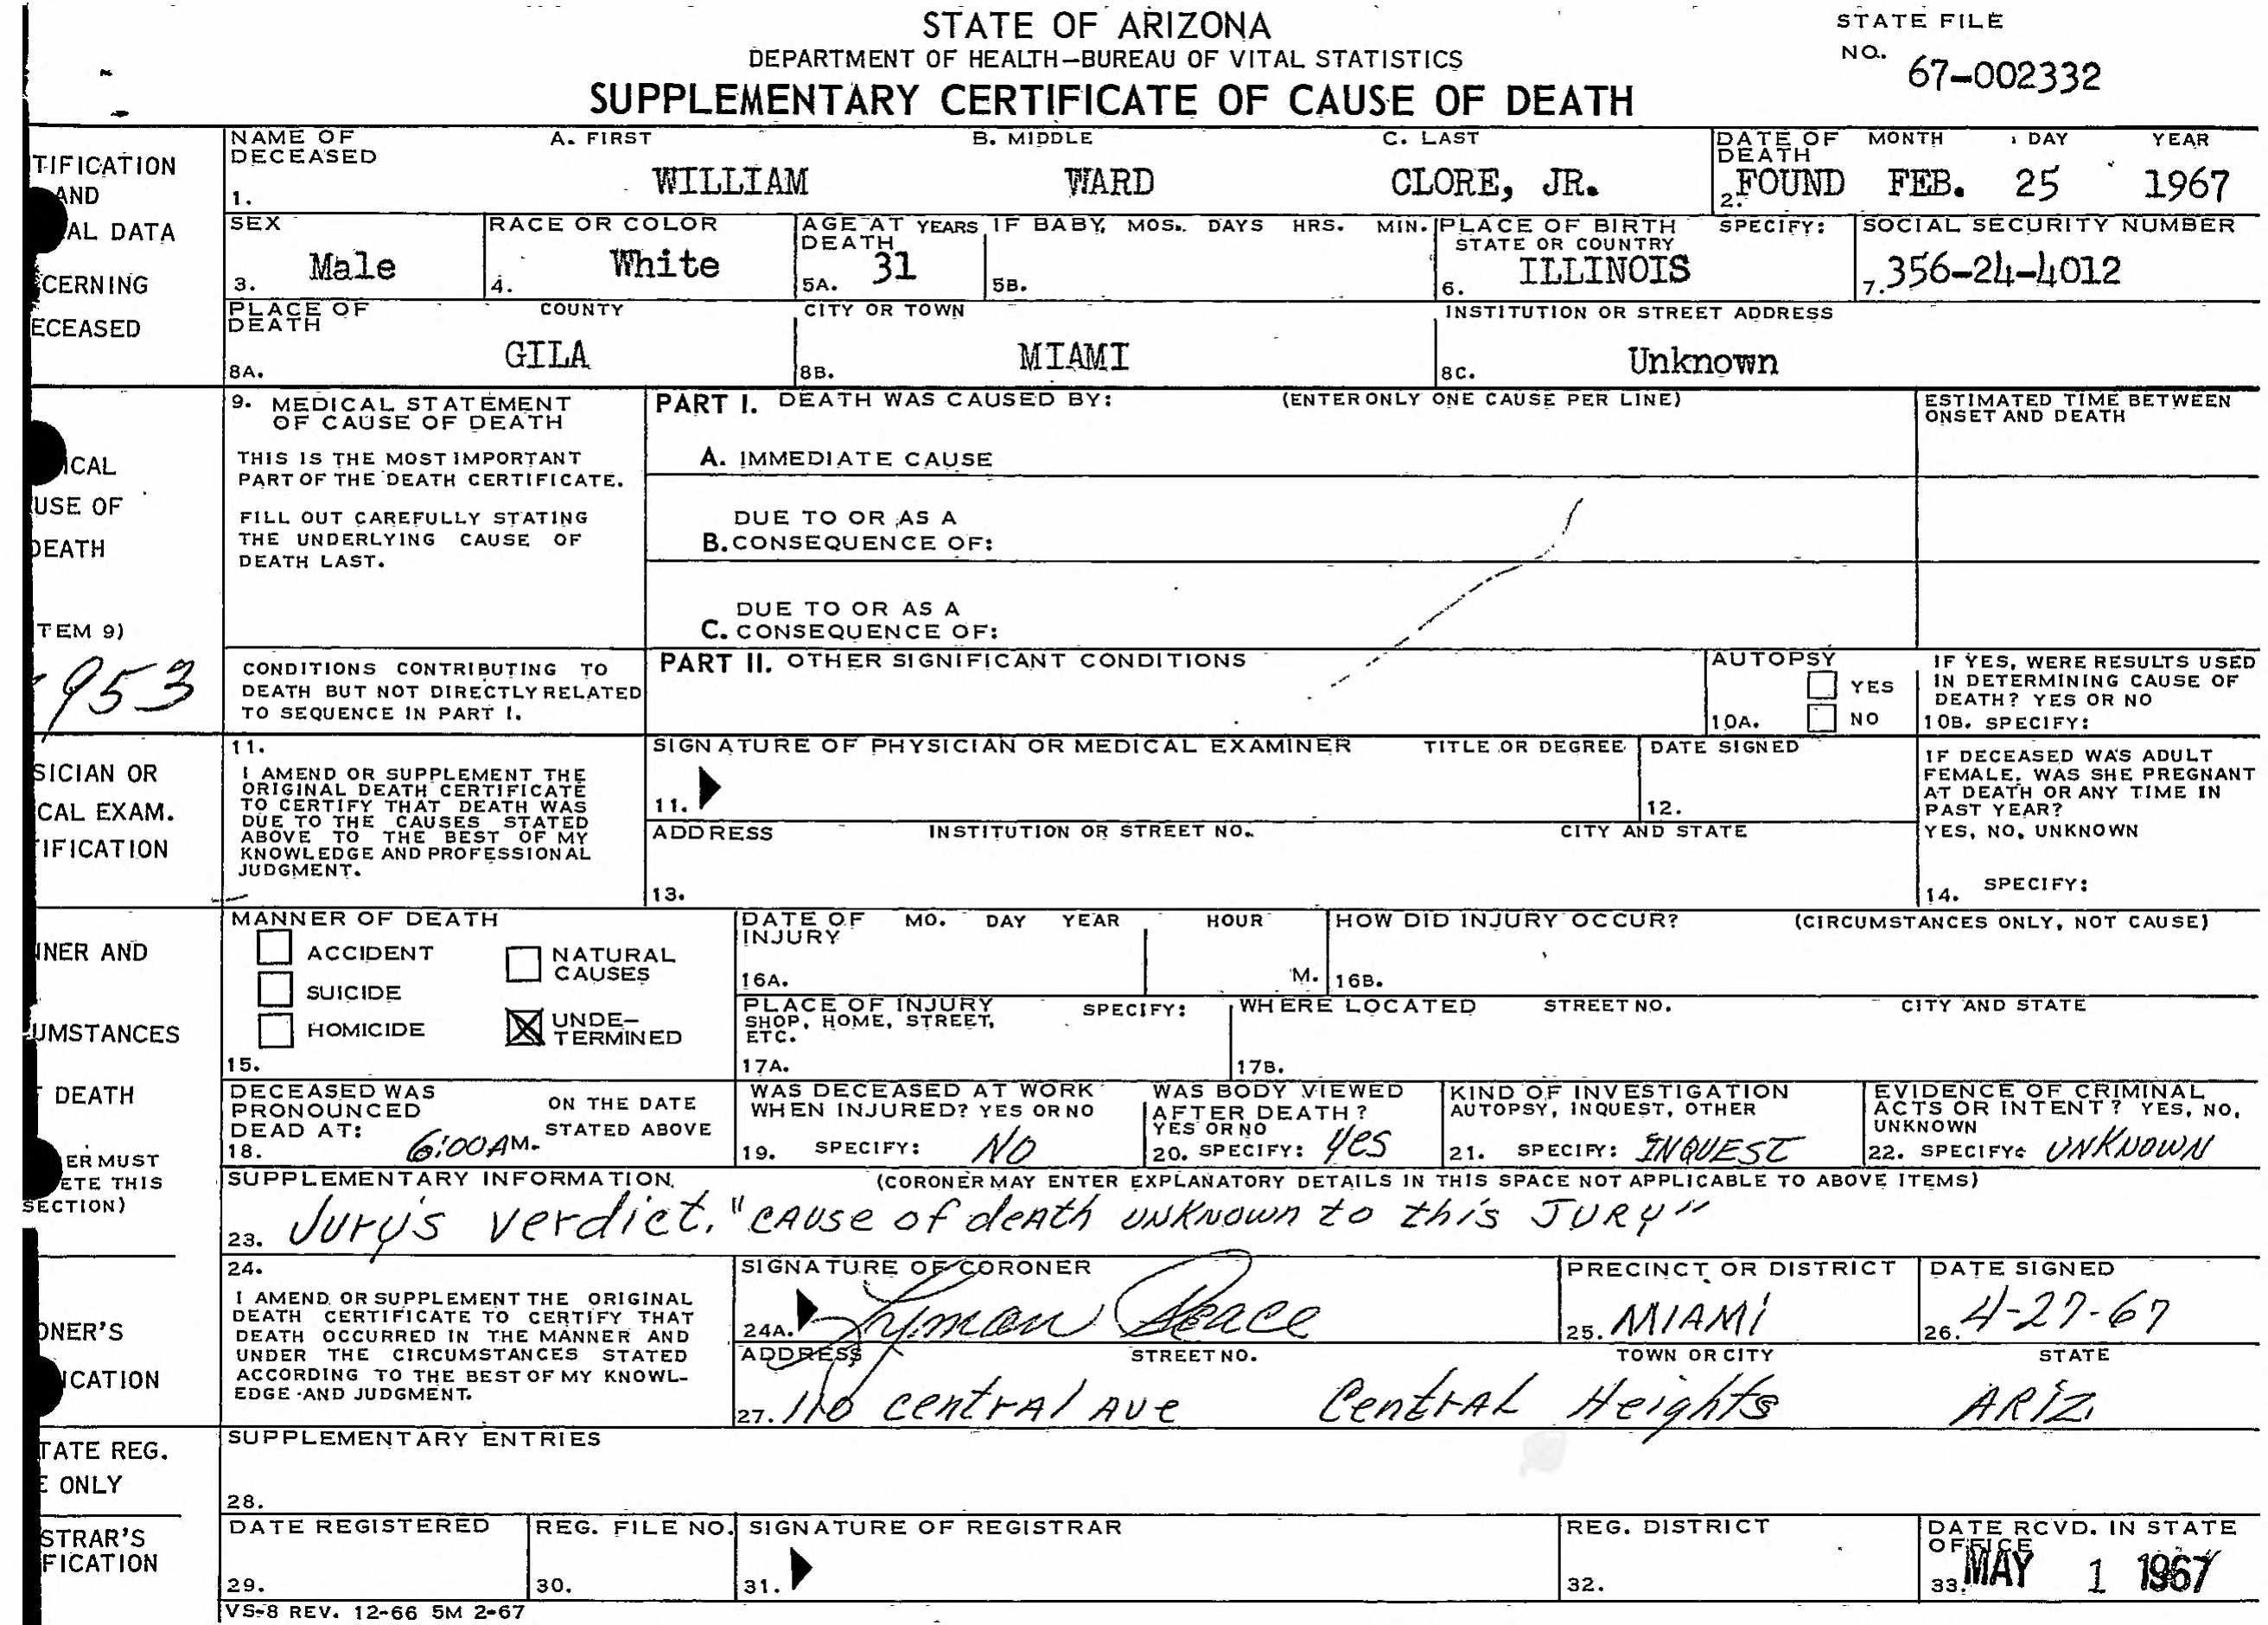 STATE OF ARIZONA
DEPARTMENT OF HEALTH—BUREAU OF VITAL STATISTICS
SUPPLEMENTARY CERTIFICATE OF CAUSE OF DEATH
STATE FILE
NO. 67-002332
TIFICATION
AND
AL DATA
CERNING
ECEASED
NAME OF DECEASED A. FIRST B. MIDDLE C. LAST
1. WILLIAM WARD CLORE, JR.
DATE OF DEATH MONTH DAY YEAR
2. FOUND FEB. 25 1967
SEX
3. Male
RACE OR COLOR
4. White
AGE AT DEATH YEARS
5A. 31
IF BABY, MOS. DAYS HRS. MIN.
5B.
PLACE OF BIRTH SPECIFY:
STATE OR COUNTRY
6. ILLINOIS
SOCIAL SECURITY NUMBER
7. 356-24-4012
PLACE OF DEATH COUNTY
8A. GILA
CITY OR TOWN
8B. MIAMI
INSTITUTION OR STREET ADDRESS
8C. Unknown
ICAL
USE OF
DEATH
TEM 9)
953
9. MEDICAL STATEMENT
OF CAUSE OF DEATH
THIS IS THE MOST IMPORTANT
PART OF THE DEATH CERTIFICATE.
FILL OUT CAREFULLY STATING
THE UNDERLYING CAUSE OF
DEATH LAST.
PART I. DEATH WAS CAUSED BY: (ENTER ONLY ONE CAUSE PER LINE)
A. IMMEDIATE CAUSE
DUE TO OR AS A
B. CONSEQUENCE OF:
DUE TO OR AS A
C. CONSEQUENCE OF:
ESTIMATED TIME BETWEEN
ONSET AND DEATH
CONDITIONS CONTRIBUTING TO
DEATH BUT NOT DIRECTLY RELATED
TO SEQUENCE IN PART I.
PART II. OTHER SIGNIFICANT CONDITIONS
AUTOPSY
YES
10A. NO
IF YES, WERE RESULTS USED
IN DETERMINING CAUSE OF
DEATH? YES OR NO
10B. SPECIFY:
SICIAN OR
CAL EXAM.
IFICATION
11.
I AMEND OR SUPPLEMENT THE
ORIGINAL DEATH CERTIFICATE
TO CERTIFY THAT DEATH WAS
DUE TO THE CAUSES STATED
ABOVE TO THE BEST OF MY
KNOWLEDGE AND PROFESSIONAL
JUDGMENT.
SIGNATURE OF PHYSICIAN OR MEDICAL EXAMINER TITLE OR DEGREE
11.
DATE SIGNED
12.
ADDRESS INSTITUTION OR STREET NO. CITY AND STATE
13.
IF DECEASED WAS ADULT
FEMALE, WAS SHE PREGNANT
AT DEATH OR ANY TIME IN
PAST YEAR?
YES, NO, UNKNOWN
14. SPECIFY:
NER AND
UMSTANCES
DEATH
ER MUST
ETE THIS
SECTION)
MANNER OF DEATH
ACCIDENT
NATURAL CAUSES
SUICIDE
HOMICIDE
UNDE—
TERMINED
15.
DATE OF INJURY MO. DAY YEAR HOUR
16A. M.
HOW DID INJURY OCCUR? (CIRCUMSTANCES ONLY, NOT CAUSE)
16B.
PLACE OF INJURY SPECIFY:
SHOP, HOME, STREET,
ETC.
17A.
WHERE LOCATED STREET NO. CITY AND STATE
17B.
DECEASED WAS
PRONOUNCED ON THE DATE
DEAD AT: STATED ABOVE
18. 6:00 AM.
WAS DECEASED AT WORK
WHEN INJURED? YES OR NO
19. SPECIFY: NO
WAS BODY VIEWED
AFTER DEATH?
YES OR NO
20. SPECIFY: YES
KIND OF INVESTIGATION
AUTOPSY, INQUEST, OTHER
21. SPECIFY: INQUEST
EVIDENCE OF CRIMINAL
ACTS OR INTENT? YES, NO,
UNKNOWN
22. SPECIFY: UNKNOWN
SUPPLEMENTARY INFORMATION. (CORONER MAY ENTER EXPLANATORY DETAILS IN THIS SPACE NOT APPLICABLE TO ABOVE ITEMS)
23. Jury's verdict. "cause of death unknown to this JURY"
ONER'S
ICATION
24.
I AMEND OR SUPPLEMENT THE ORIGINAL
DEATH CERTIFICATE TO CERTIFY THAT
DEATH OCCURRED IN THE MANNER AND
UNDER THE CIRCUMSTANCES STATED
ACCORDING TO THE BEST OF MY KNOWL-
EDGE AND JUDGMENT.
SIGNATURE OF CORONER
24A. Lyman Peace
PRECINCT OR DISTRICT
25. MIAMI
DATE SIGNED
26. 4-27-67
ADDRESS STREET NO. TOWN OR CITY STATE
27. 110 central Ave Central Heights ARIZ.
TATE REG.
E ONLY
SUPPLEMENTARY ENTRIES
28.
STRAR'S
FICATION
DATE REGISTERED
29.
REG. FILE NO.
30.
SIGNATURE OF REGISTRAR
31.
REG. DISTRICT
32.
DATE RCVD. IN STATE
OFFICE
33. MAY 1 1967
VS-8 REV. 12-66 5M 2-67